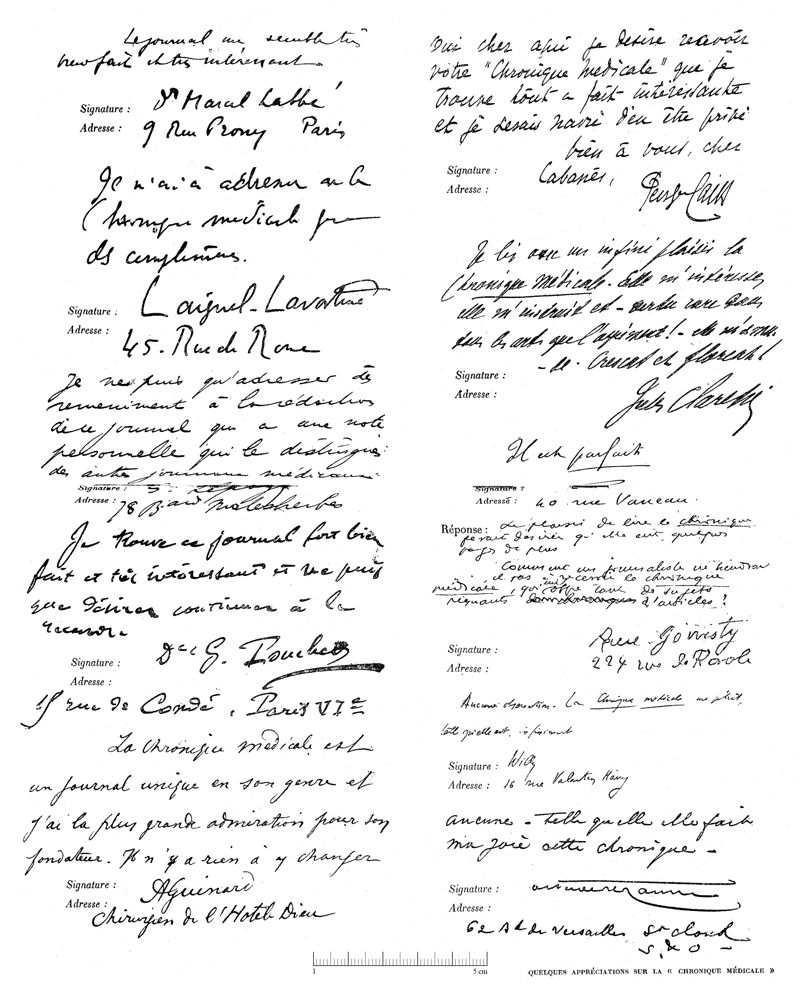 Le journal me semble très
bien fait et très intéressant
Signature : Dr Marcel Labbé
Adresse : 9 Rue Prony Paris
Je n'ai à adresser à la
Chronique médicale que
des compliments.
Signature : Laignel-Lavastine
Adresse :
45. Rue de Rome
Je ne puis qu'adresser des
à la rédaction
de ce journal qui a une note
personnelle qui le distingue
des autres journaux médicaux
Signature :
Adresse : 78 Bard Malesherbes
Je trouve ce journal fort bien
fait et très intéressant et ne puis
que désirer continuer à le
Signature : G. Pouchet
Adresse :
15 rue de Condé, Paris VIe
La Chronique médicale est
un journal unique en son genre et
j'ai la plus grande admiration pour son
fondateur. Il n'y a rien à y changer
Signature : A Guinard
Adresse :
Chirurgien de l'Hotel Dieu
Oui cher ami je désire recevoir
votre "Chronique Medicale" que je
trouve tout a fait intéressante
et je serais navré d'en être privé
bien à vous, cher
Signature : Cabanès,
Adresse : Georges Cain
Je lis avec un infini plaisir la
Chronique Médicale. Elle m'intéresse,
elle m'instruit et
Crescat et floreat!
Signature :
Adresse :
Jules Claretie
Il est parfait
Signature :
Adresse : 40 rue Vaneau.
Réponse : Le plaisir de lire la chronique
désirer qu'elle eut quelques
pages de plus
Comment un journaliste ne tiendrait
il pas à recevoir la chronique
médicale, qui offre tant de sujets
d'articles ?
Signature :
Adresse : 224 rue de Rivoli
Aucune observation. La Chronique médicale me plait,
telle qu'elle est, infiniment
Signature : Willy
Adresse : 16 rue Valentin Haüy
aucune - Telle quelle elle fait
ma joie cette chronique -
Signature :
Adresse :
62 Bd de Versailles St Cloud
S. & O
1 5 cm
QUELQUES APPRÉCIATIONS SUR LA « CHRONIQUE MÉDICALE »